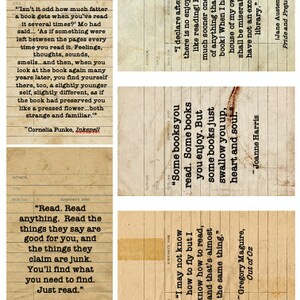 "Isn't it odd how much fatter
a book gets when you've read it
several times?" Mo had
said... "As if something were
left between the pages every
time you read it. Feelings,
thoughts, sounds,
smells...and then, when you
look at the book again many
years later, you find yourself
there, too, a slightly younger
self, slightly different, as if
the book had preserved you
like a pressed flower...both
strange and familiar."
~Cornelia Funke, Inkspell
"Read. Read
anything. Read the
things they say are
good for you, and
the things they
claim are junk.
You'll find what
you need to find.
Just read."
"I declare after
there is no enjoy
like reading!
much sooner one
of anything tha
book! When I h
house of my ow
shall be misera
have not an exc
library."
~Jane Austen,
Pride and Preju
"Some books you
read. Some books
you enjoy. But
some books just
swallow you up,
heart and soul."
~Joanne Harris
"I may not know
how to fly but I
know how to read,
and that's almost
the same thing."
~Gregory Maguire,
Out of Oz